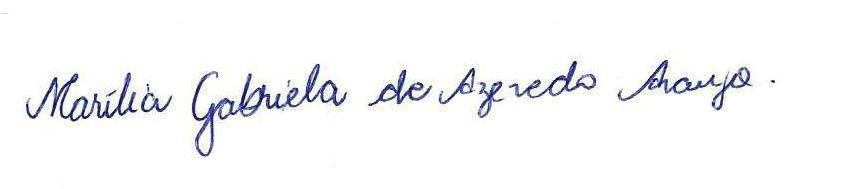 Marília Gabriela de Azevedo Araujo.